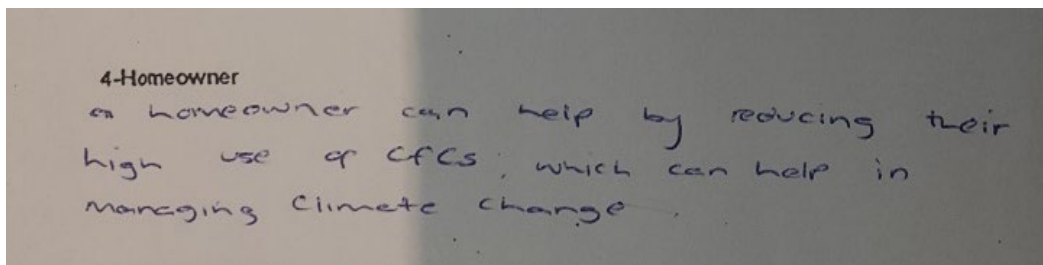 4-Homeowner
a homeowner can help by reducing their
high use of CFCs, which can help in
managing climate change.